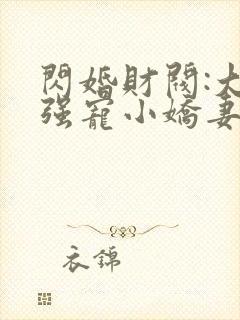 閃婚財閥:大
强寵小嬌妻
衣錦